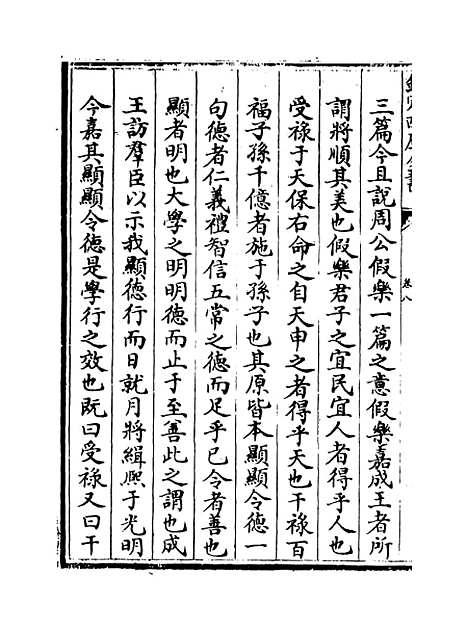 三篇今且說周公假樂一篇之意假樂嘉成王者所
謂將順其美也假樂君子之宜民宜人者得乎人也
受祿于天保右命之自天申之者得乎天也干祿百
福子孫千億者施于孫子也其原皆本顯顯令德一
句德者仁義禮智信五常之德而足乎已令者善也
顯者明也大學之明明德而止于至善此之謂也成
王訪羣臣以示我顯德行而日就月將緝熙于光明
今嘉其顯顯令德是學行之效也旣曰受祿又曰干
卷八